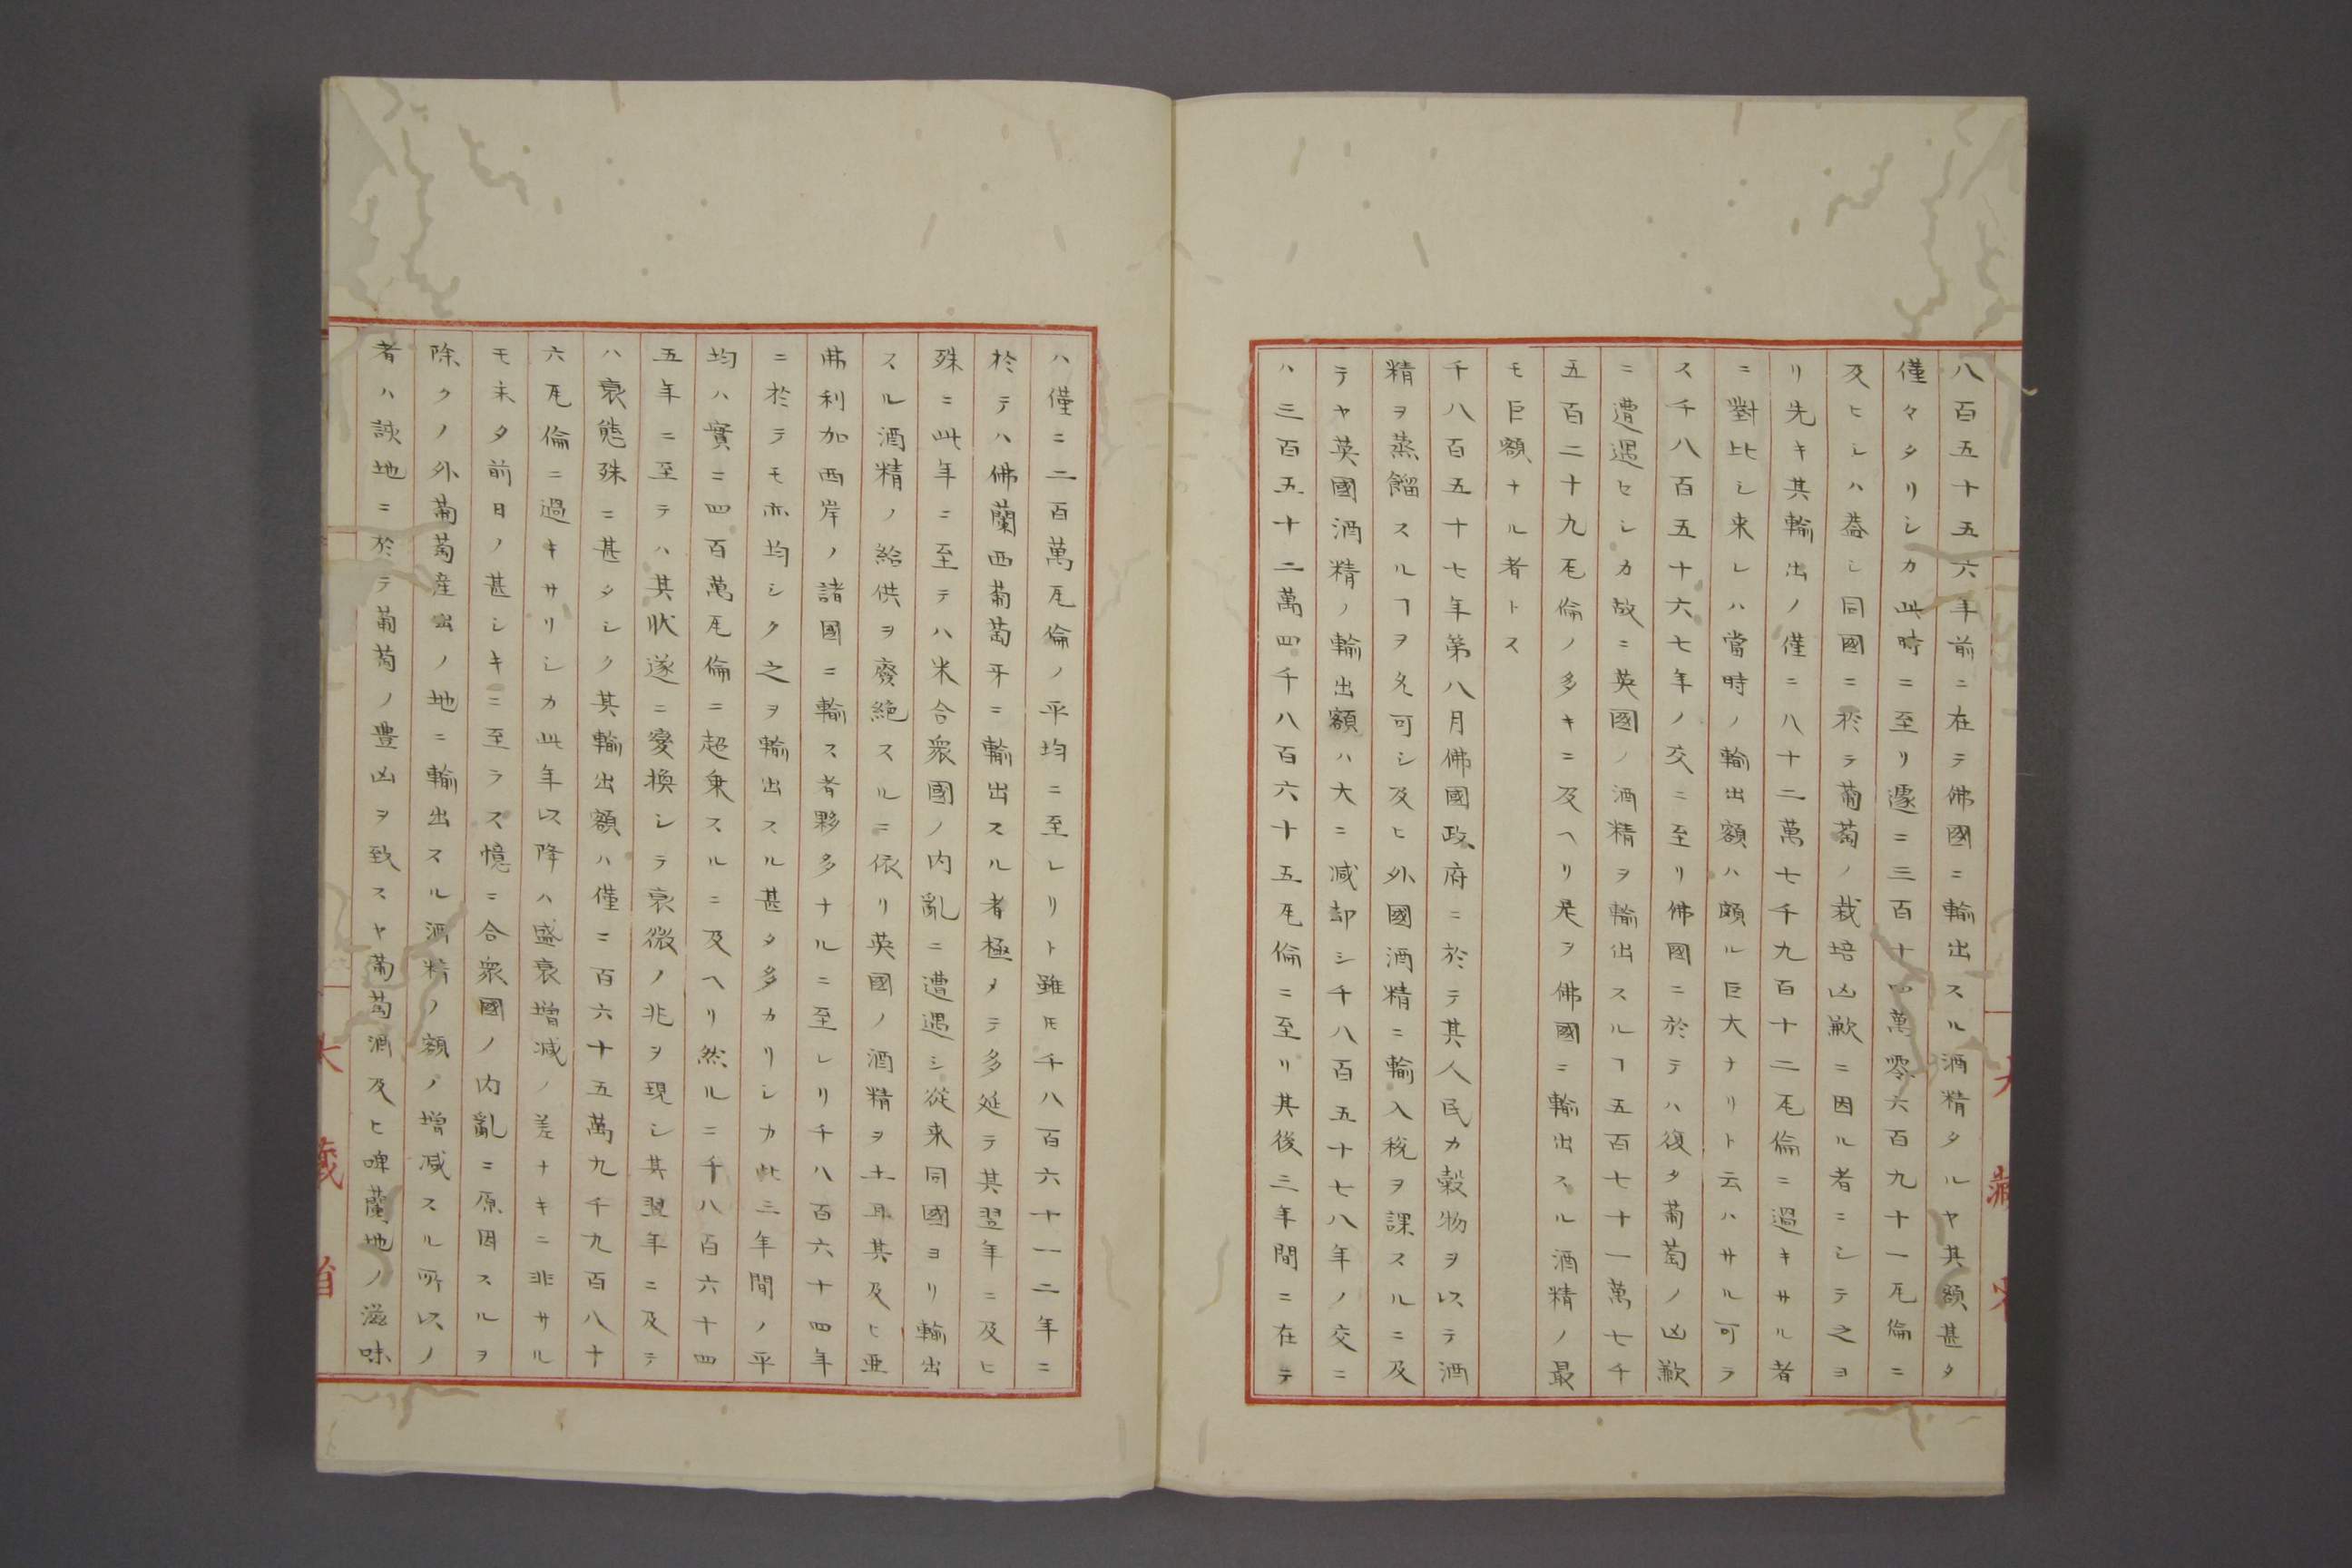 八百五十五六年前ニ在テ佛國ニ輸出スル酒精タルヤ其額甚タ
僅々タリシカ此時ニ至リ遽ニ三百十四萬零六百九十一瓦倫ニ
及ヒシハ蓋シ同國ニ於テ葡萄ノ栽培凶歉ニ因ル者ニシテ之ヨ
リ先キ其輸出ノ僅ニ八十二萬七千九百十二瓦倫ニ過キサル者
ニ對比シ来レハ當時ノ輸出額ハ頗ル巨大ナリト云ハサル可ラ
ス千八百五十六七年ノ交ニ至リ佛國ニ於テハ復タ葡萄ノ凶歉
ニ遭遇セシカ故ニ英國ノ酒精ヲ輸出スルヿ五百七十一萬七千
五百二十九瓦倫ノ多キニ及ヘリ是ヲ佛國ニ輸出スル酒精ノ最
モ巨額ナル者トス
千八百五十七年第八月佛國政府ニ於テ其人民カ穀物ヲ以テ酒
精ヲ蒸餾スルヿヲ允可シ及ヒ外國酒精ニ輸入税ヲ課スルニ及
テヤ英國酒精ノ輸出額ハ大ニ減却シ千八百五十七八年ノ交ニ
ハ三百五十二萬四千八百六十五瓦倫ニ至リ其後三年間ニ在テ
ハ僅ニ二百萬瓦倫ノ平均ニ至レリト雖𪜈千八百六十一二年ニ
於テハ佛蘭西葡萄牙ニ輸出スル者極メテ多延テ其翌年ニ及ヒ
殊ニ此年ニ至テハ米合衆國ノ内亂ニ遭遇シ從来同國ヨリ輸出
スル酒精ノ給供ヲ廢絶スルニ依リ英國ノ酒精ヲ土耳其及ヒ亜
弗利加西岸ノ諸國ニ輸ス者夥多ナルニ至レリ千八百六十四年
ニ於テモ亦均シク之ヲ輸出スル甚タ多カリシカ此三年間ノ平
均ハ實ニ四百萬瓦倫ニ超乗スルニ及ヘリ然ルニ千八百六十四
五年ニ至テハ其状遂ニ變換シテ衰微ノ兆ヲ現シ其翌年ニ及テ
ハ衰態殊ニ甚タシク其輸出額ハ僅ニ百六十五萬九千九百八十
六瓦倫ニ過キサリシカ此年以降ハ盛衰増減ノ差ナキニ非サル
モ未タ前日ノ甚シキニ至ラス憶ニ合衆國ノ内亂ニ原因スルヲ
除クノ外葡萄産出ノ地ニ輸出スル酒精ノ額ノ増減スル所以ノ
者ハ該地ニ於テ葡萄ノ豊凶ヲ致スヤ葡萄酒及ヒ啤蘭地ノ滋味
大藏省